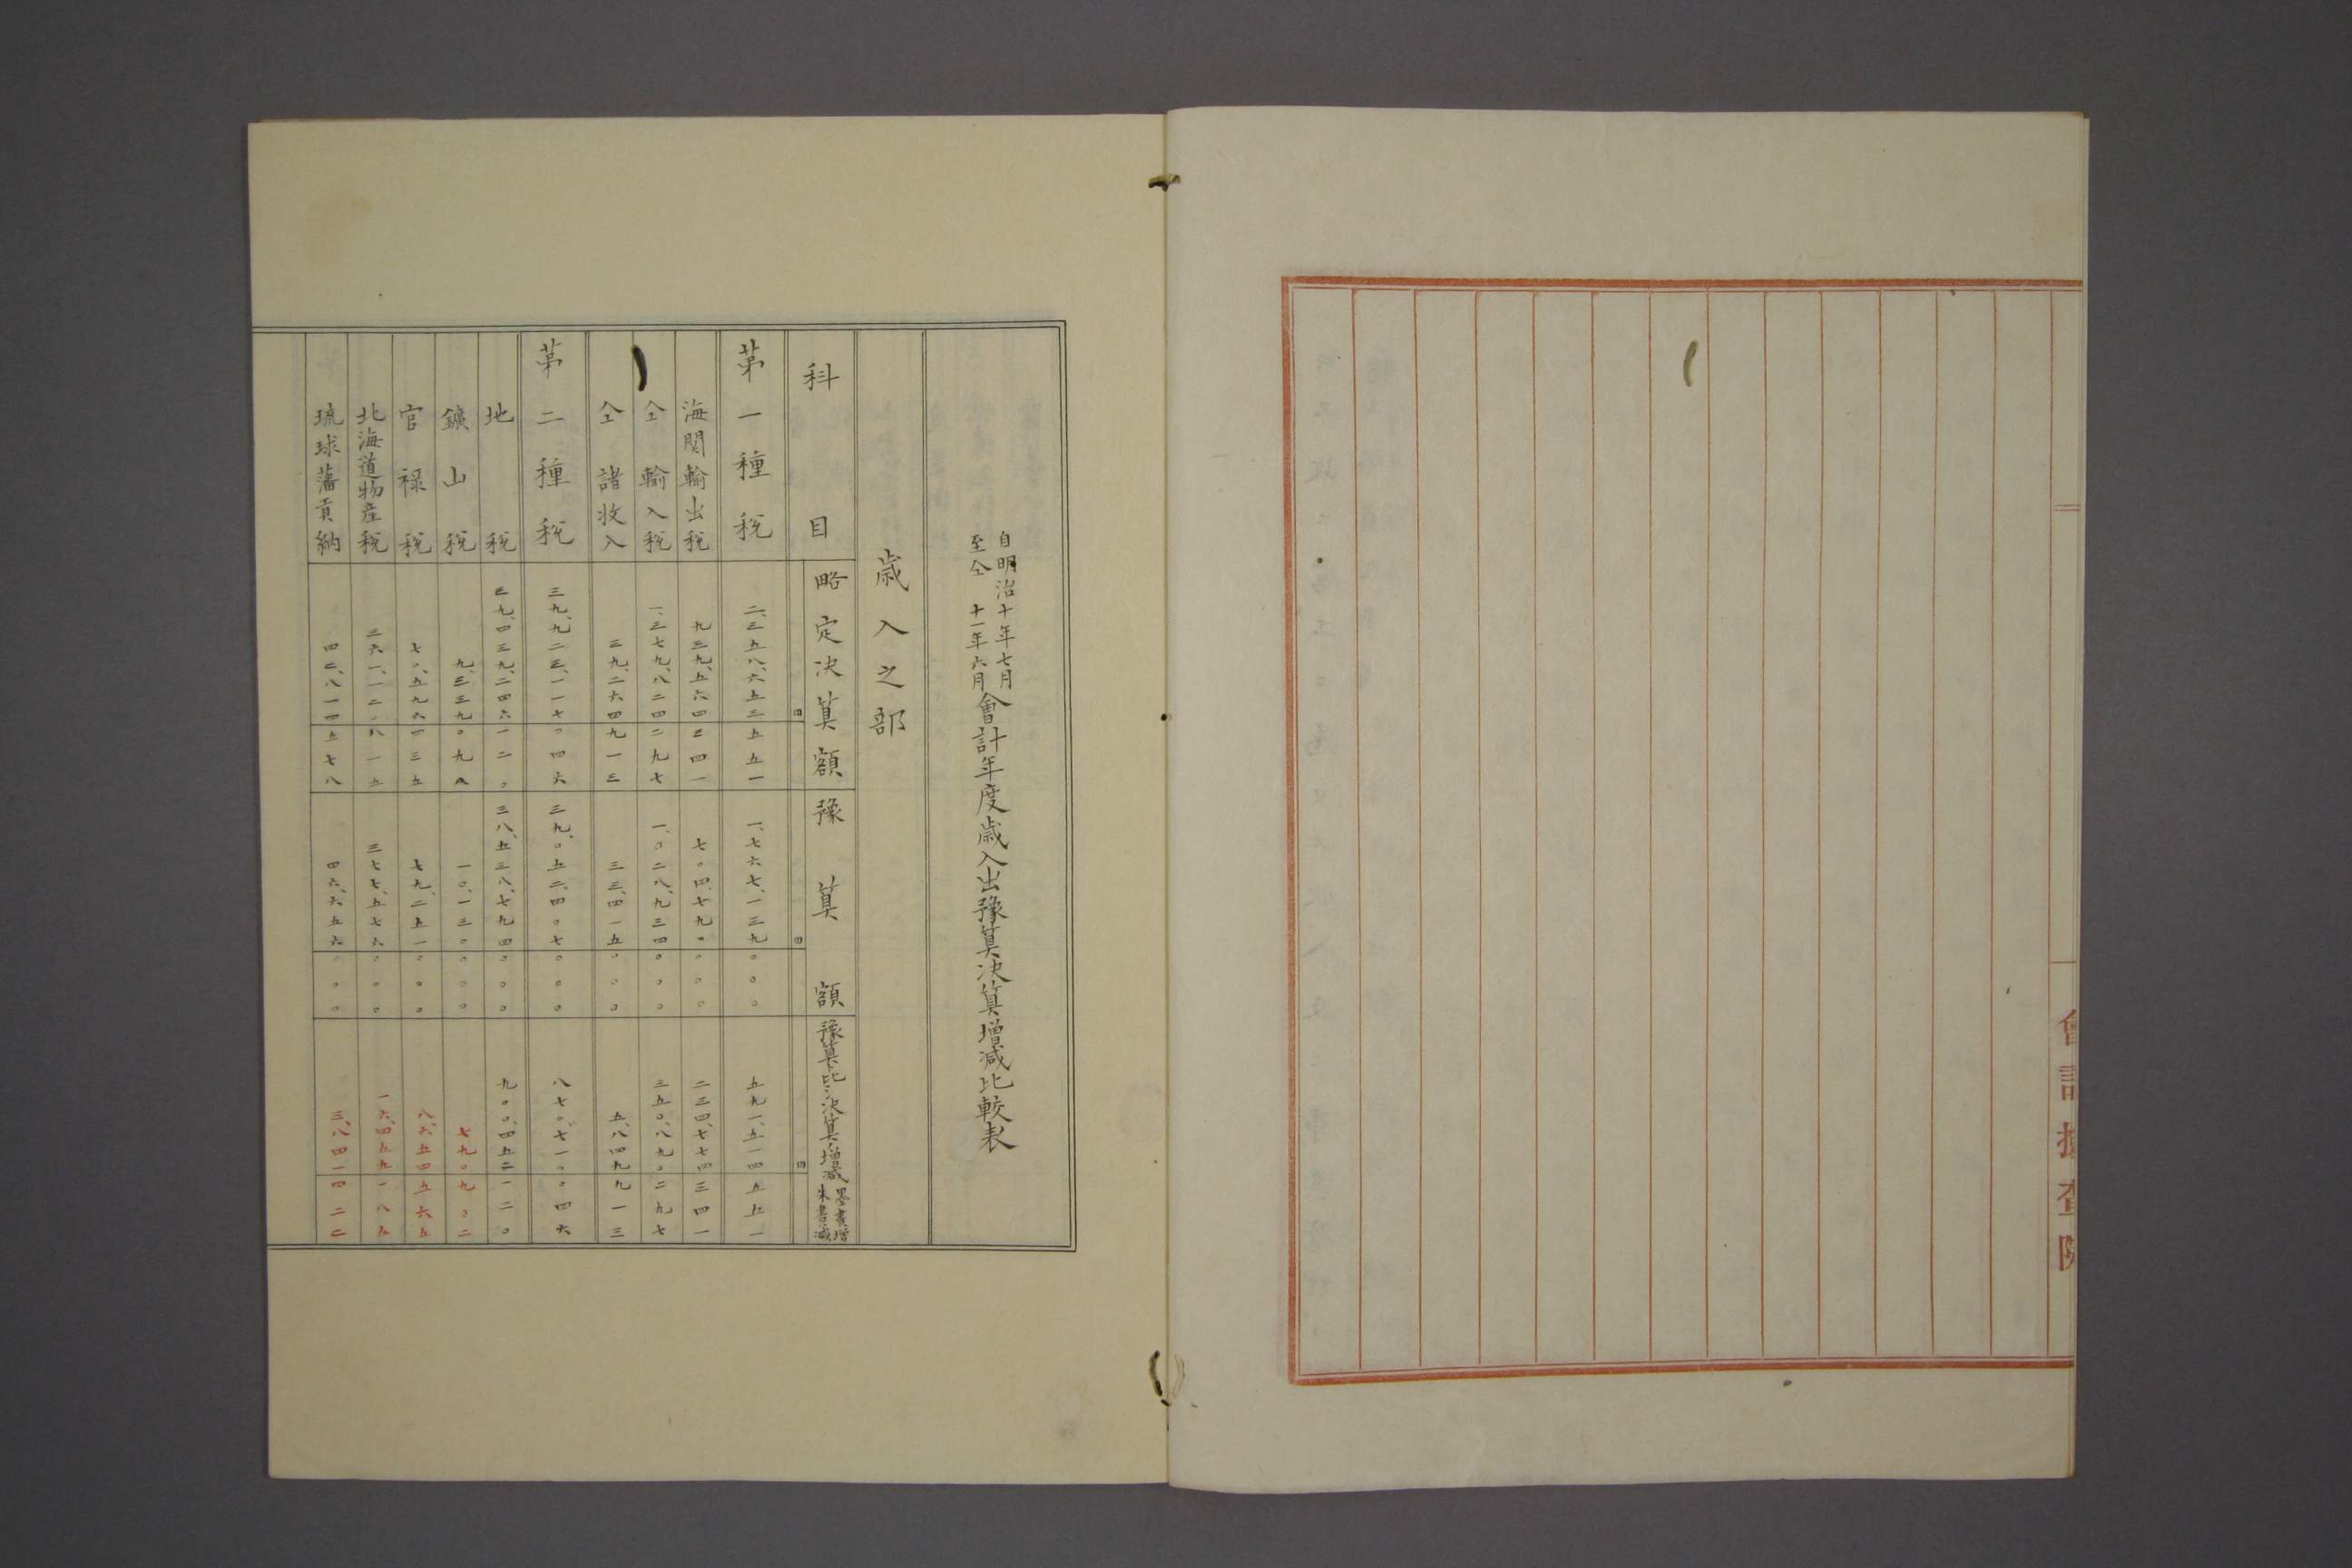 會計檢査院
自明治十年七月
至仝十一年六月
會計年度歳入出豫算決算増減比較表
歳入之部
科目
略定決算額
豫算額
豫算比決算増減
墨書増
朱書減
円
円
円
第一種税 二、三五八、六五三 五五一 一、七六七、一三九 〇〇〇 五九一、五一四 五五一
海関輸出税 九三九、五六四 三四一 七〇四、七九〇 〇〇〇 二三四、七七四 三四一
仝輸入税 一、三七九、八二四 二九七 一、〇二八、九三四 〇〇〇 三五〇、八九〇 二九七
仝諸收入 三九、二六四 九一三 三三、四一五 〇〇〇 五、八四九 九一三
第二種税 三九、九二三、一一七 〇四六 三九、〇五二、四〇七 〇〇〇 八七〇、七一〇 〇四六
地税 三九、四三九、二四六 一二〇 三八、五三八、七九四 〇〇〇 九〇〇、四五二 一二〇
鑛山税 九、三三九 〇九八 一〇、一三〇 〇〇〇 七九〇 九〇二
官禄税 七〇、五九六 四三五 七九、二五一 〇〇〇 八、六五四 五六五
北海道物産税 三六一、一二〇 八一五 三七七、五七六 〇〇〇 一六、四五五 一八五
琉球藩貢納 四二、八一四 五七八 四六、六五六 〇〇〇 三、八四一 四二二